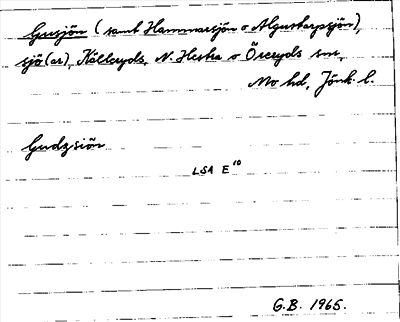 Gusjön (samt Hammarsjön o Algustorpasjön),
sjö(ar), Källeryds, N. Hestra o Öreryds snr,
Mo hd, Jönk. l.
Gudzsiön
LSA E¹⁰
G.B. 1965.